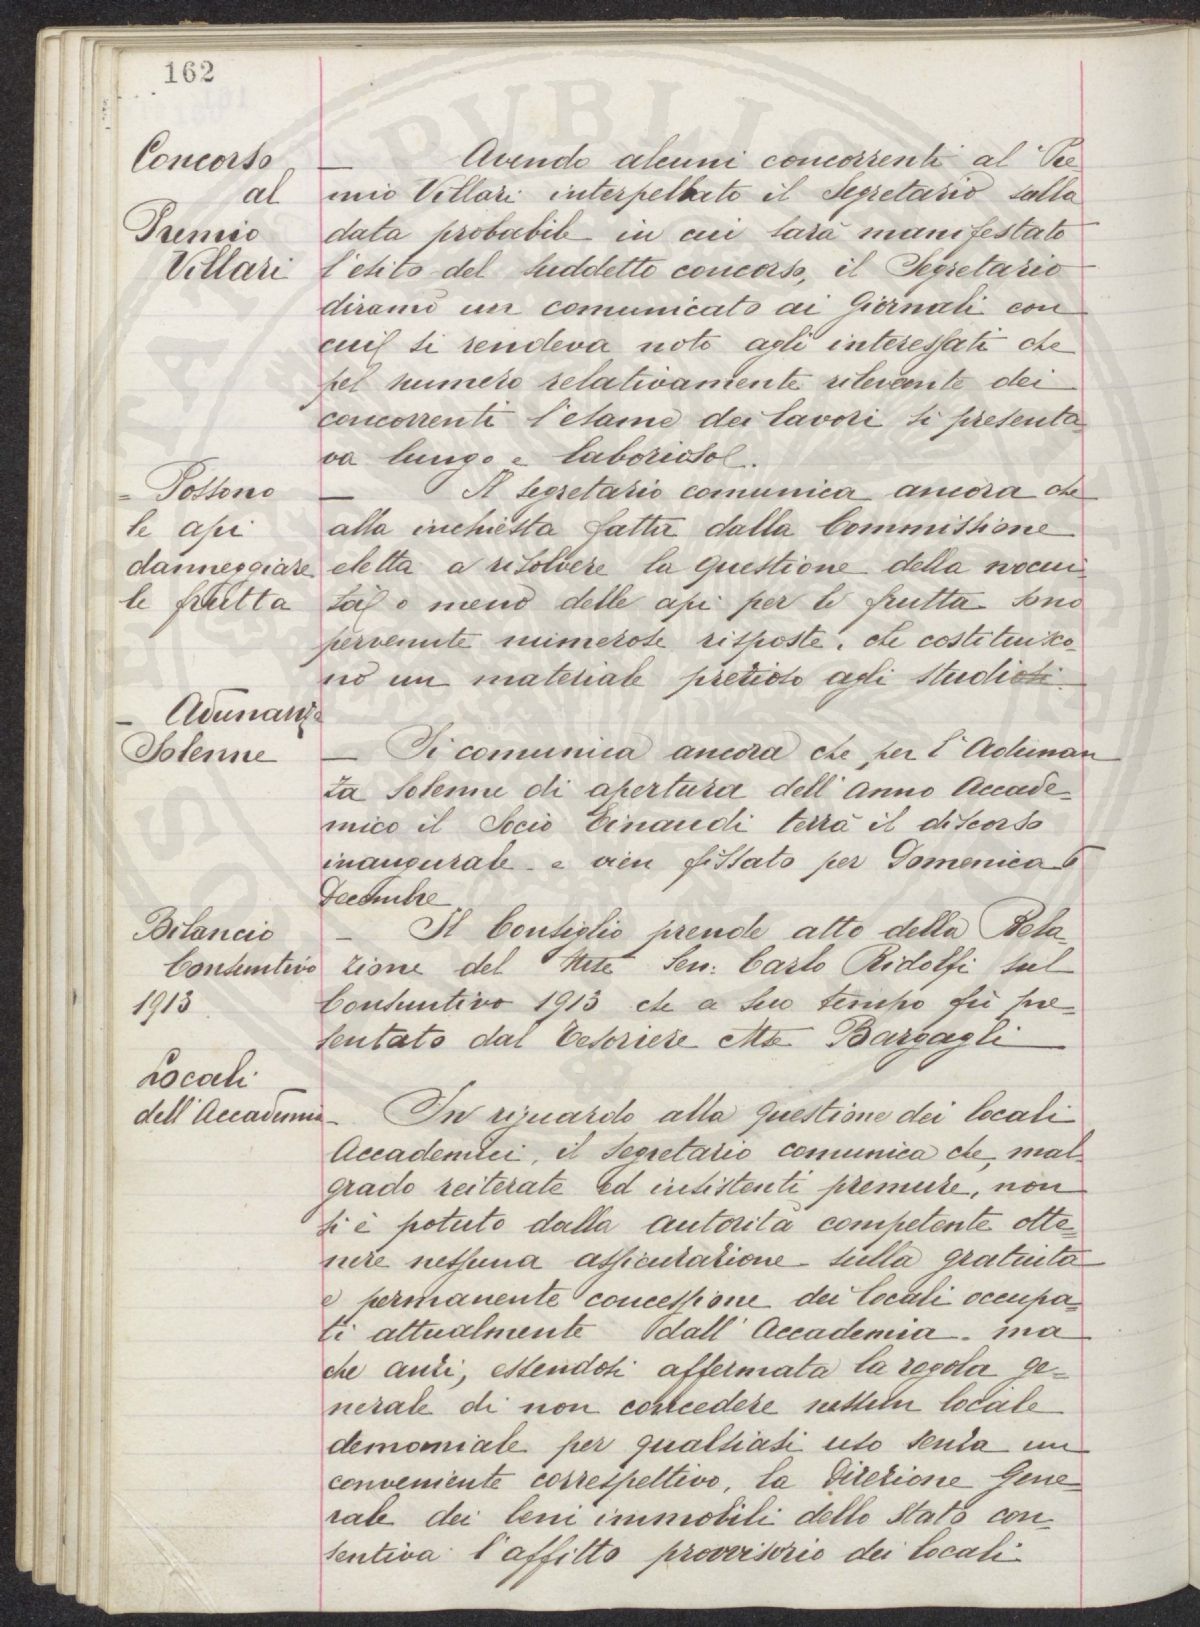 162
Concorso
al
Premio
Villari
— Avendo alcuni concorrenti al Pre
mio Villari interpellato il Segretario sulla
data probabile in cui sarà manifestato
l'esito del suddetto concorso, il Segretario
diramò un comunicato ai Giornali con
cui si rendeva noto agli interessati che
pel numero relativamente rilevante dei
concorrenti l'esame dei lavori si presenta=
va lungo e laborioso.
= Possono
le api
danneggiare
le frutta
— Il segretario comunica ancora che
alla inchiesta fatta dalla Commissione
eletta a risolvere la questione della nocui=
tà o meno delle api per le frutta sono
pervenute numerose risposte, che costituisco=
no un materiale prezioso agli studiosi.
— Adunanza
Solenne
— Si comunica ancora che per l'Adunan
za solenne di apertura dell'anno Accade=
mico il Socio Einaudi terrà il discorso
inaugurale e vien fissato per Domenica 6
Decembre
Bilancio
Consuntivo
1913
— Il Consiglio prende atto della Rela=
zione del Mse Sen: Carlo Ridolfi sul
Consuntivo 1913 che a suo tempo fù pre=
sentato dal Tesoriere Mse Bargagli
Locali
dell'Accademia
— In riguardo alla questione dei locali
Accademici, il Segretario comunica che, mal=
grado reiterate ed insistenti premure, non
si è potuto dalla autorità competente otte=
nere nessuna assicurazione sulla gratuita
e permanente concessione dei locali occupa=
ti attualmente dall'Accademia. ma
che anzi, essendosi affermata la regola ge=
nerale di non concedere nessun locale
demaniale per qualsiasi uso senza un
conveniente correspettivo, la Direzione Gene=
rale dei beni immobili dello Stato con=
sentiva l'affitto provvisorio dei locali